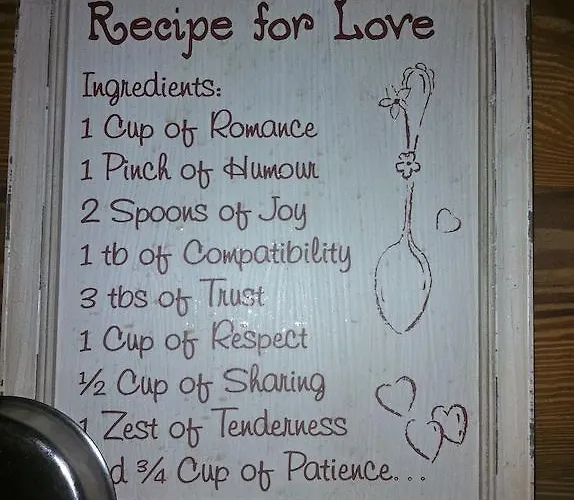 Recipe for Love
Ingredients:
1 Cup of Romance
1 Pinch of Humour
2 Spoons of Joy
1 tb of Compatibility
3 tbs of Trust
1 Cup of Respect
½ Cup of Sharing
1 Zest of Tenderness
d ¾ Cup of Patience...